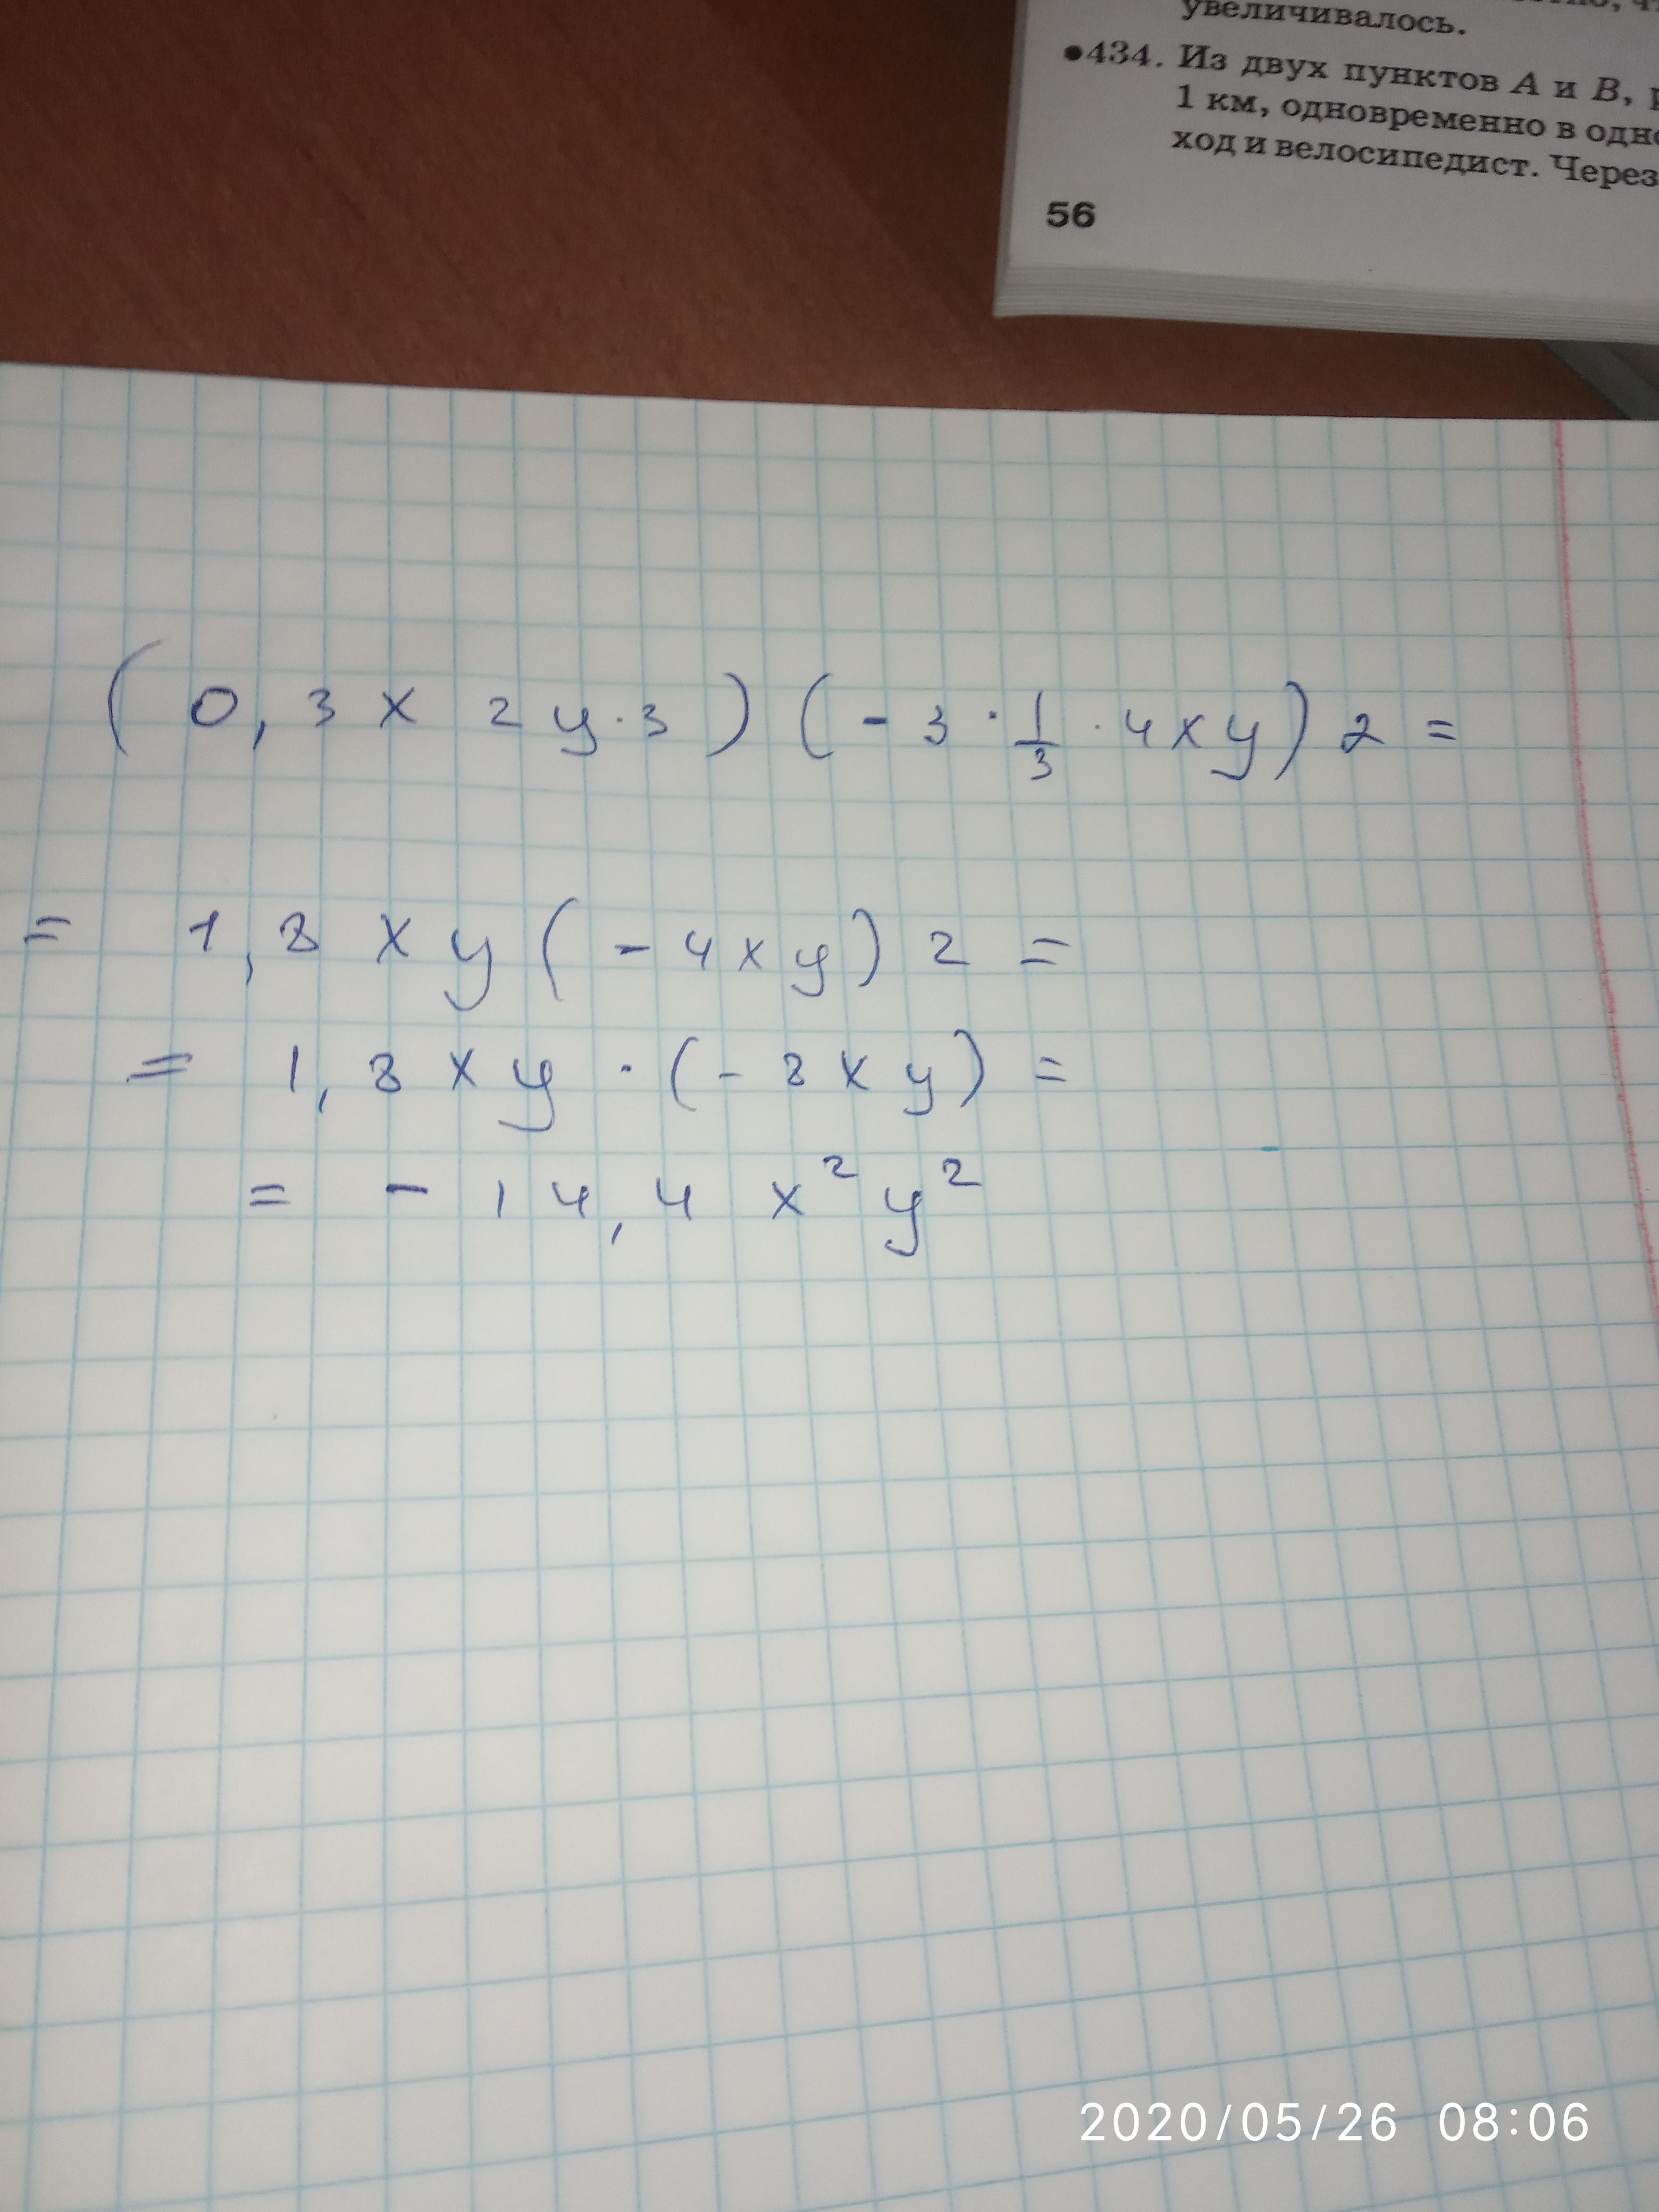 увеличивалось.
•434. Из двух пунктов A и B,
1 км, одновременно в одно
ход и велосипедист. Через
56
( 0,3 x 2 y · 3 ) ( - 3 · 1/3 · 4 x y ) 2 =
= 1,8 x y ( - 4 x y ) 2 =
= 1,8 x y · ( - 8 x y ) =
= - 14,4 x² y²
2020/05/26 08:06